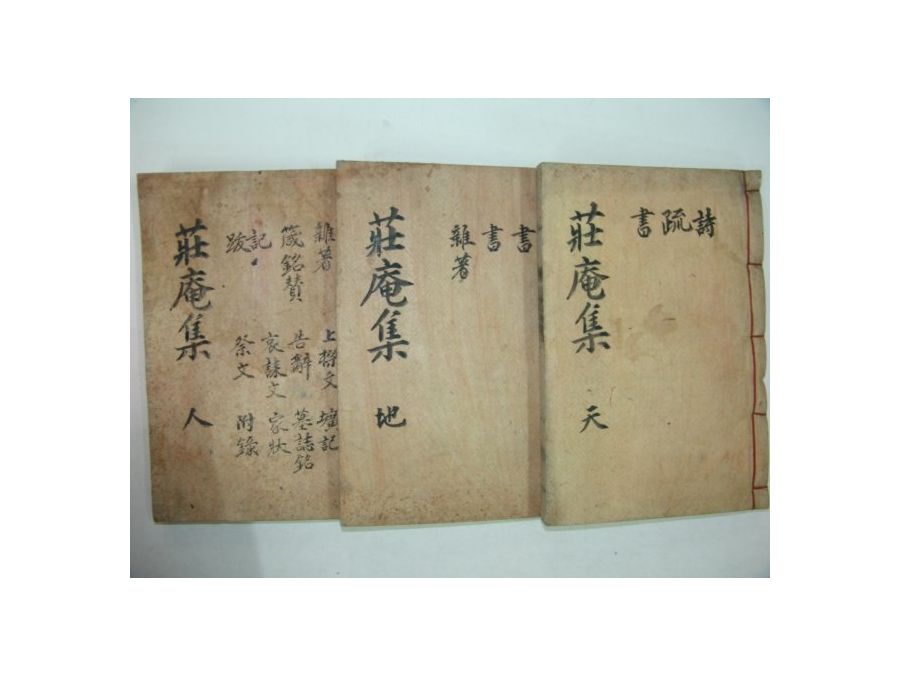 詩
疏
書
莊庵集 天
書
書
雜著
莊庵集 地
雜著
箴銘贊
記
跋
上樑文
告辭
哀誄文
祭文
壙記
墓誌銘
家狀
附錄
莊庵集 人